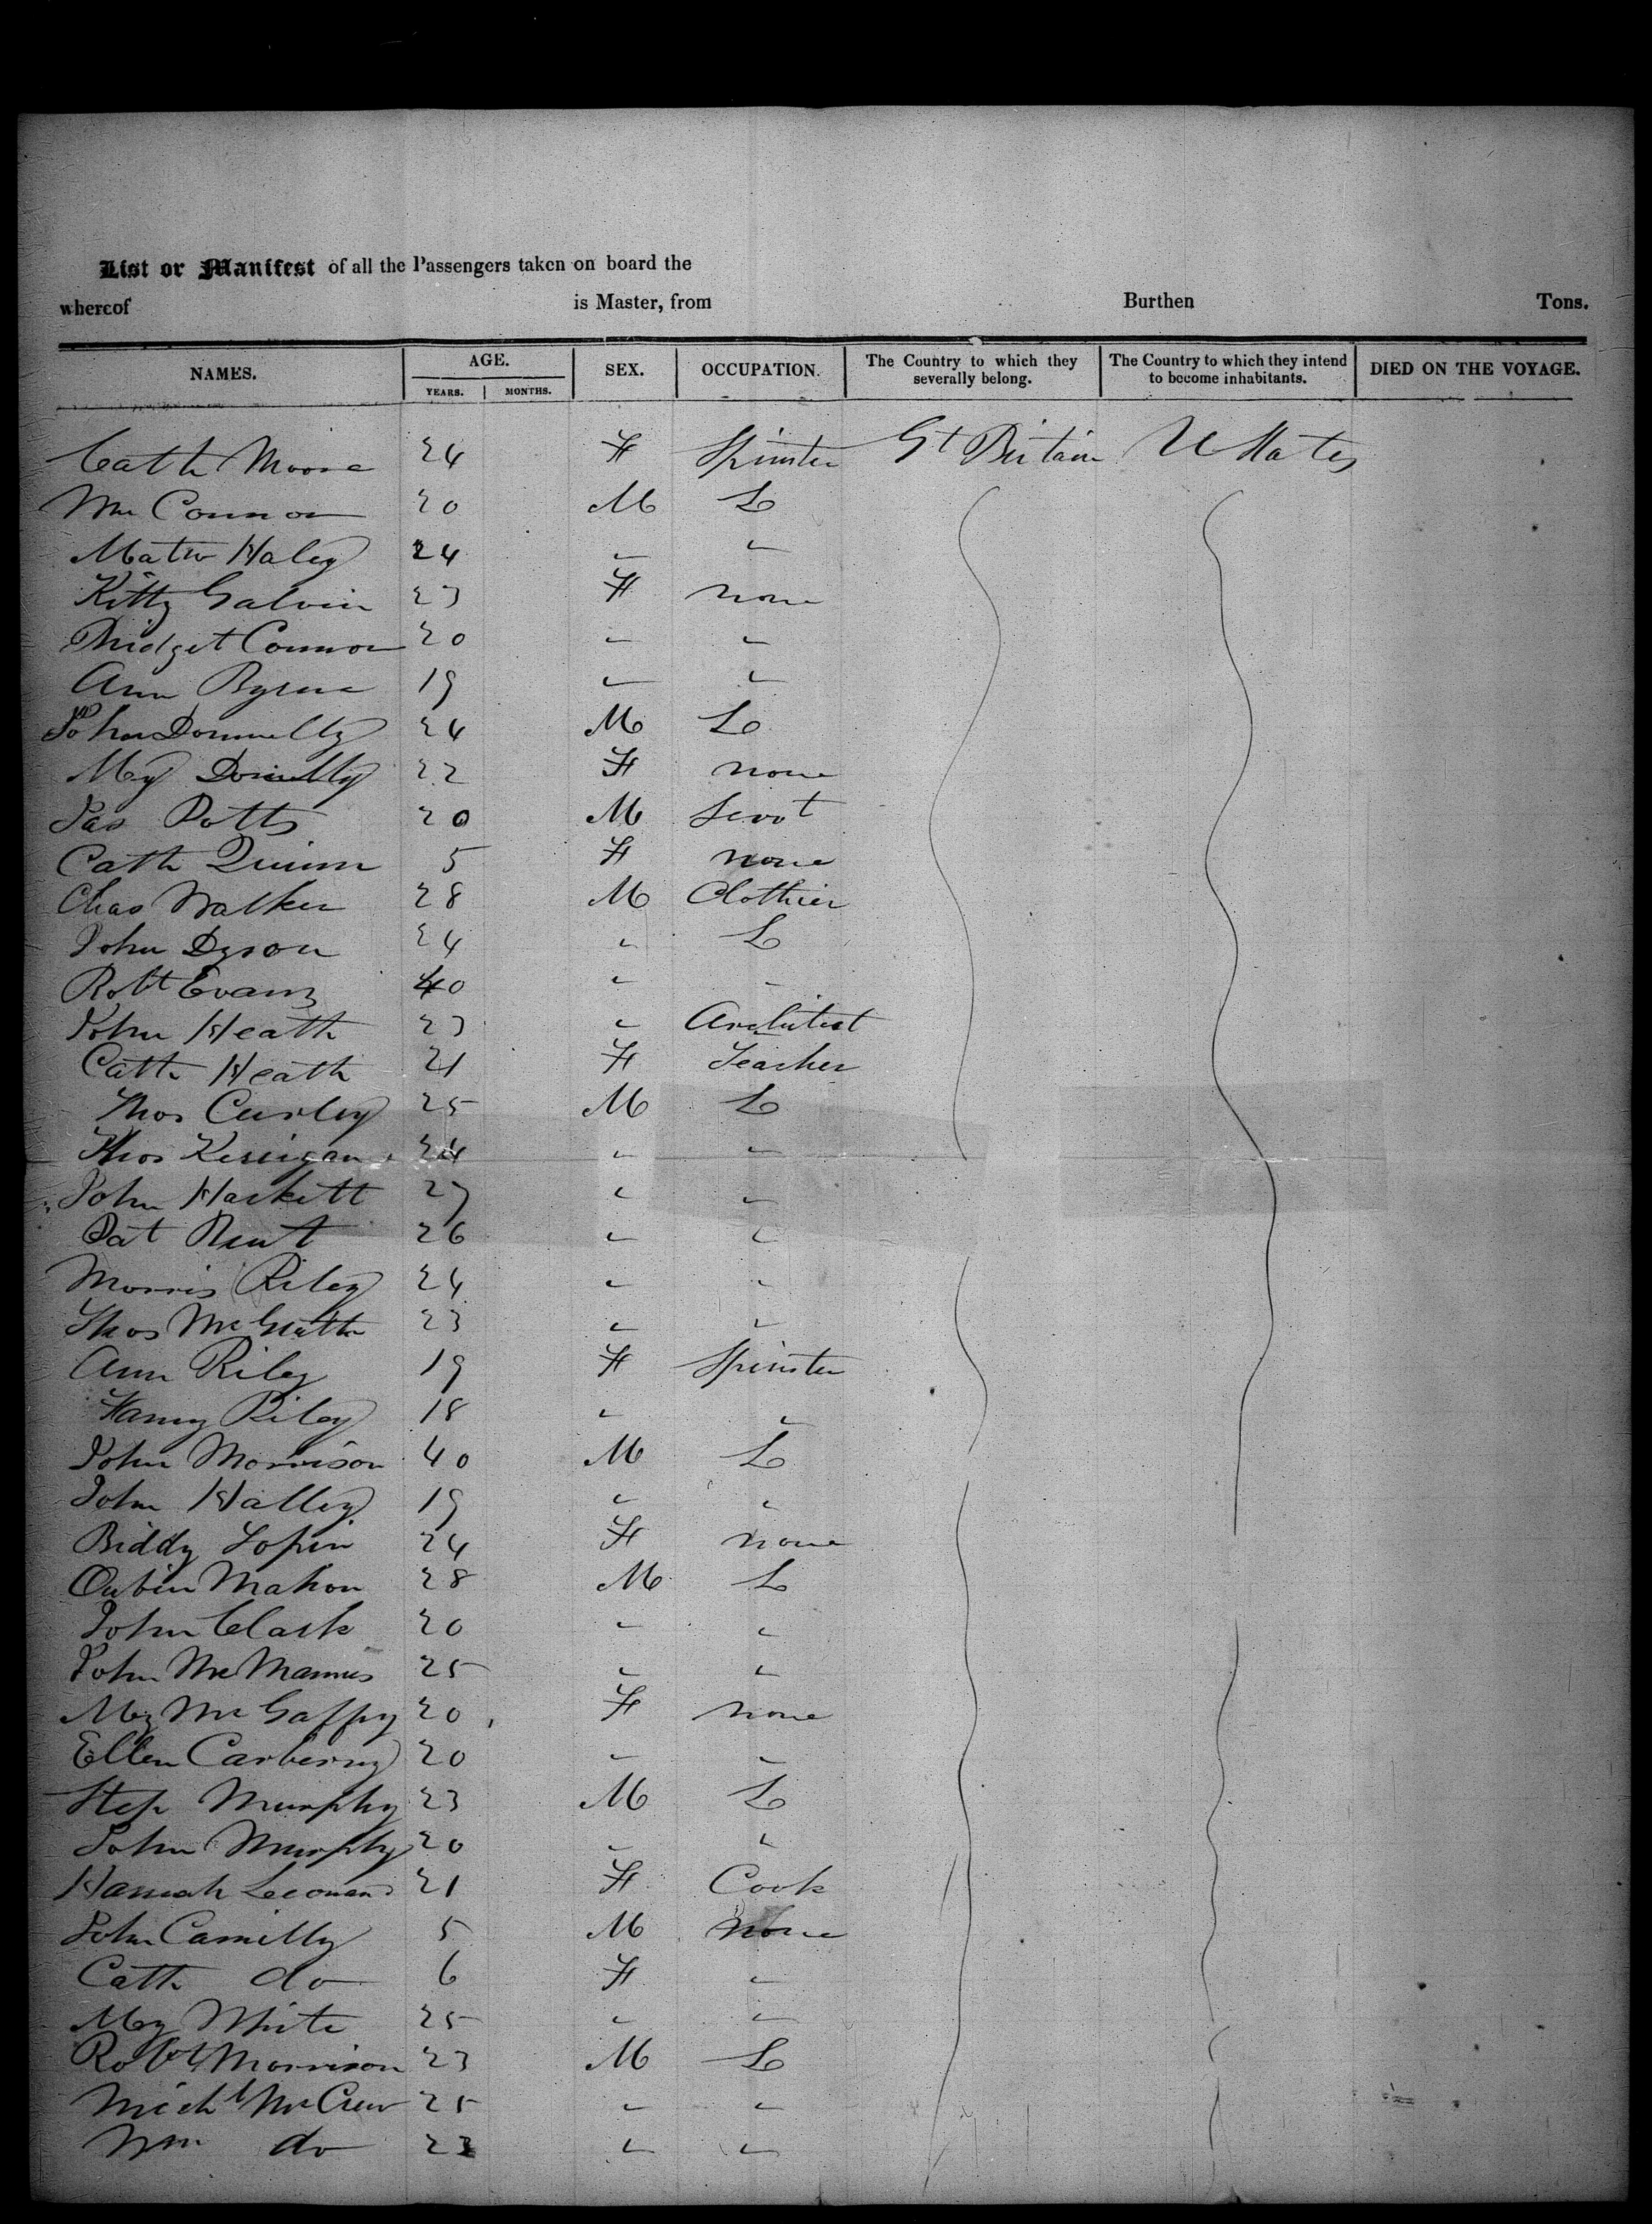 List or Manifest of all the Passengers taken on board the
whereof is Master, from Burthen Tons.
NAMES. AGE. SEX. OCCUPATION. The Country to which they severally belong. The Country to which they intend to become inhabitants. DIED ON THE VOYAGE.
YEARS. MONTHS.
Cath Moore 24 F Spinster Gt Britain U States
Wm Connor 20 M L
Matw Haley 24 " "
Kitty Galvin 23 F none
Bridget Connor 20 " "
Ann Byrne 19 " "
John Donnelly 24 M L
Mgy Donnelly 22 F none
Jas Potts 20 M Servt
Cath Quinn 5 F none
Chas Walker 28 M Clothier
John Dyson 24 " L
Robt Evans 40 " "
John Heath 23 " Architect
Cath Heath 21 F Teacher
Thos Curley 25 M L
Thos Kerrigan 24 " "
John Hackett 27 " "
Pat 26 " "
Morris Riley 24 " "
Thos McGrath 23 " "
Ann Riley 19 F Spinster
Fanny Riley 18 " "
John Morrison 40 M L
John Halley 19 " "
Biddy 24 F none
Mahon 28 M L
John Clark 20 " "
John McManus 25 " "
Mgy McGaffry 20 F none
Ellen Carberry 20 " "
Step Murphy 23 M L
John Murphy 20 " "
Hannah 21 F Cook
John 5 M none
Cath do 6 F "
Mgy White 25 " "
Robt Morrison 23 M L
Michl McCrew 25 " "
Wm do 23 " "